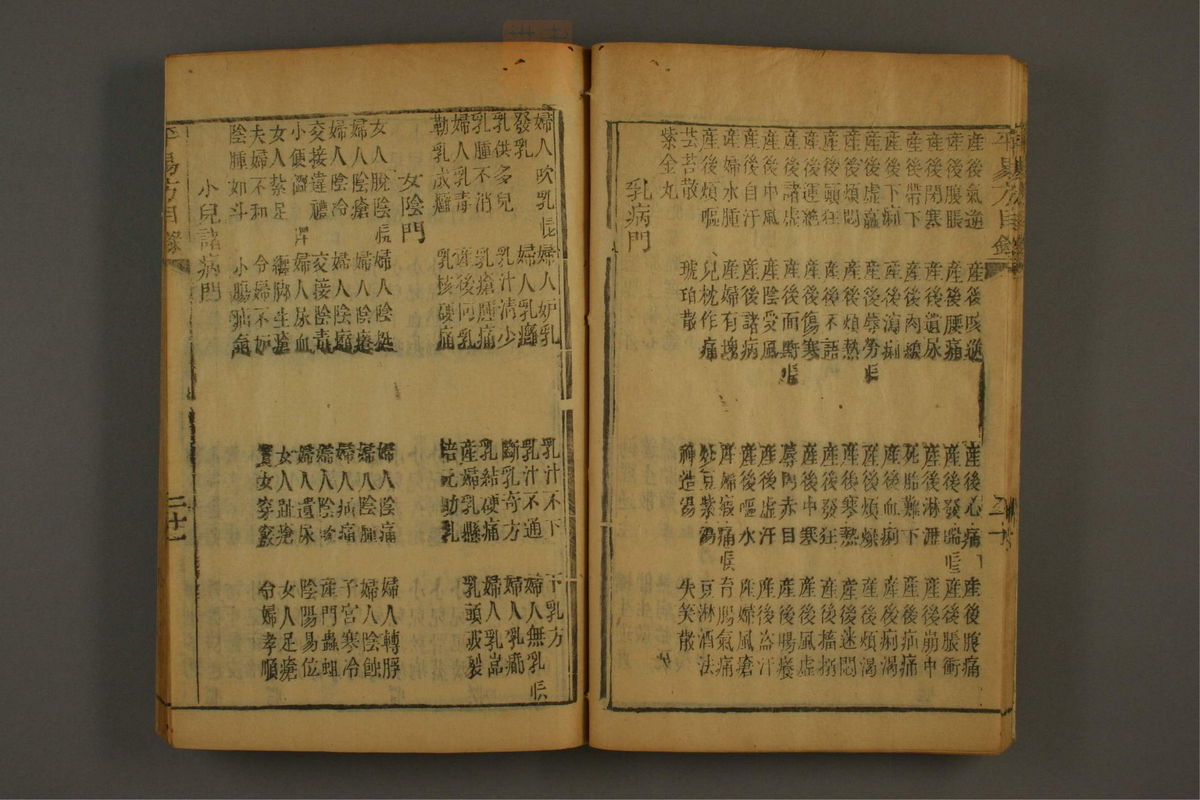 產後氣逆 產後咳逆 產後心痛 產後腹痛
產後腹脹 產後腰痛 產後發喘 產後脹衝
產後閉塞 產後遺尿 產後淋瀝 產後崩中
產後帶下 產後肉線 死胎難下 產後疝痛
產後下痢 產後瀉痢 產後血痢 產後痢渴
產後虛羸 產後蓐勞 產後煩燥 產後煩渴
產後煩悶 產後煩熱 產後寒熱 產後迷悶
產後顛狂 產後不語 產後發狂 產後搐搦
產後運絕 產後傷寒 產後中寒 產後風虛
產後諸患 產後面黔 蓐內赤目 產後腸癢
產後中風 產陰受風 產後虛汗 產後盜汗
產後自汗 產後諸病 產後嘔水 產婦風瘡
產婦水腫 產婦有塊 產婦瘕痛 育腸氣痛
產後煩嘔 兒枕作痛 炒豆紫湯 豆淋酒法
芸苔散 琥珀散 神造湯 失笑散
紫金丸
乳病門
平易方目錄
婦人吹乳 婦人妒乳 乳汁不下 下乳方
發乳 婦人乳癰 乳汁不通 婦人無乳
乳供多兒 乳汁清少 斷乳奇方 婦人乳癤
乳腫不消 乳瘡腫痛 乳結硬痛 婦人乳嵓
婦人乳毒 產後回乳 產婦乳懸 乳頭破裂
勒乳成癰 乳核硬痛 培元助乳
女陰門
女人脫陰 婦人陰挺 婦人陰痛 婦人轉脬
婦人陰瘡 婦人陰癢 婦人陰腫 婦人陰蝕
婦人陰冷 婦人陰㿗 婦人病痛 子宮寒冷
交接違禮 交接陰毒 婦人陰 產門蟲蛆
小便澀 婦人尿血 婦人遺尿 陰陽易位
女人紮足 纏脚生瘡 女人趾瘡 女人足瘡
夫婦不和 令婦不妒 實女穿竅 令婦孝順
陰腫如斗 小腸疝氣
小兒諸病門
平易方目錄
二十一